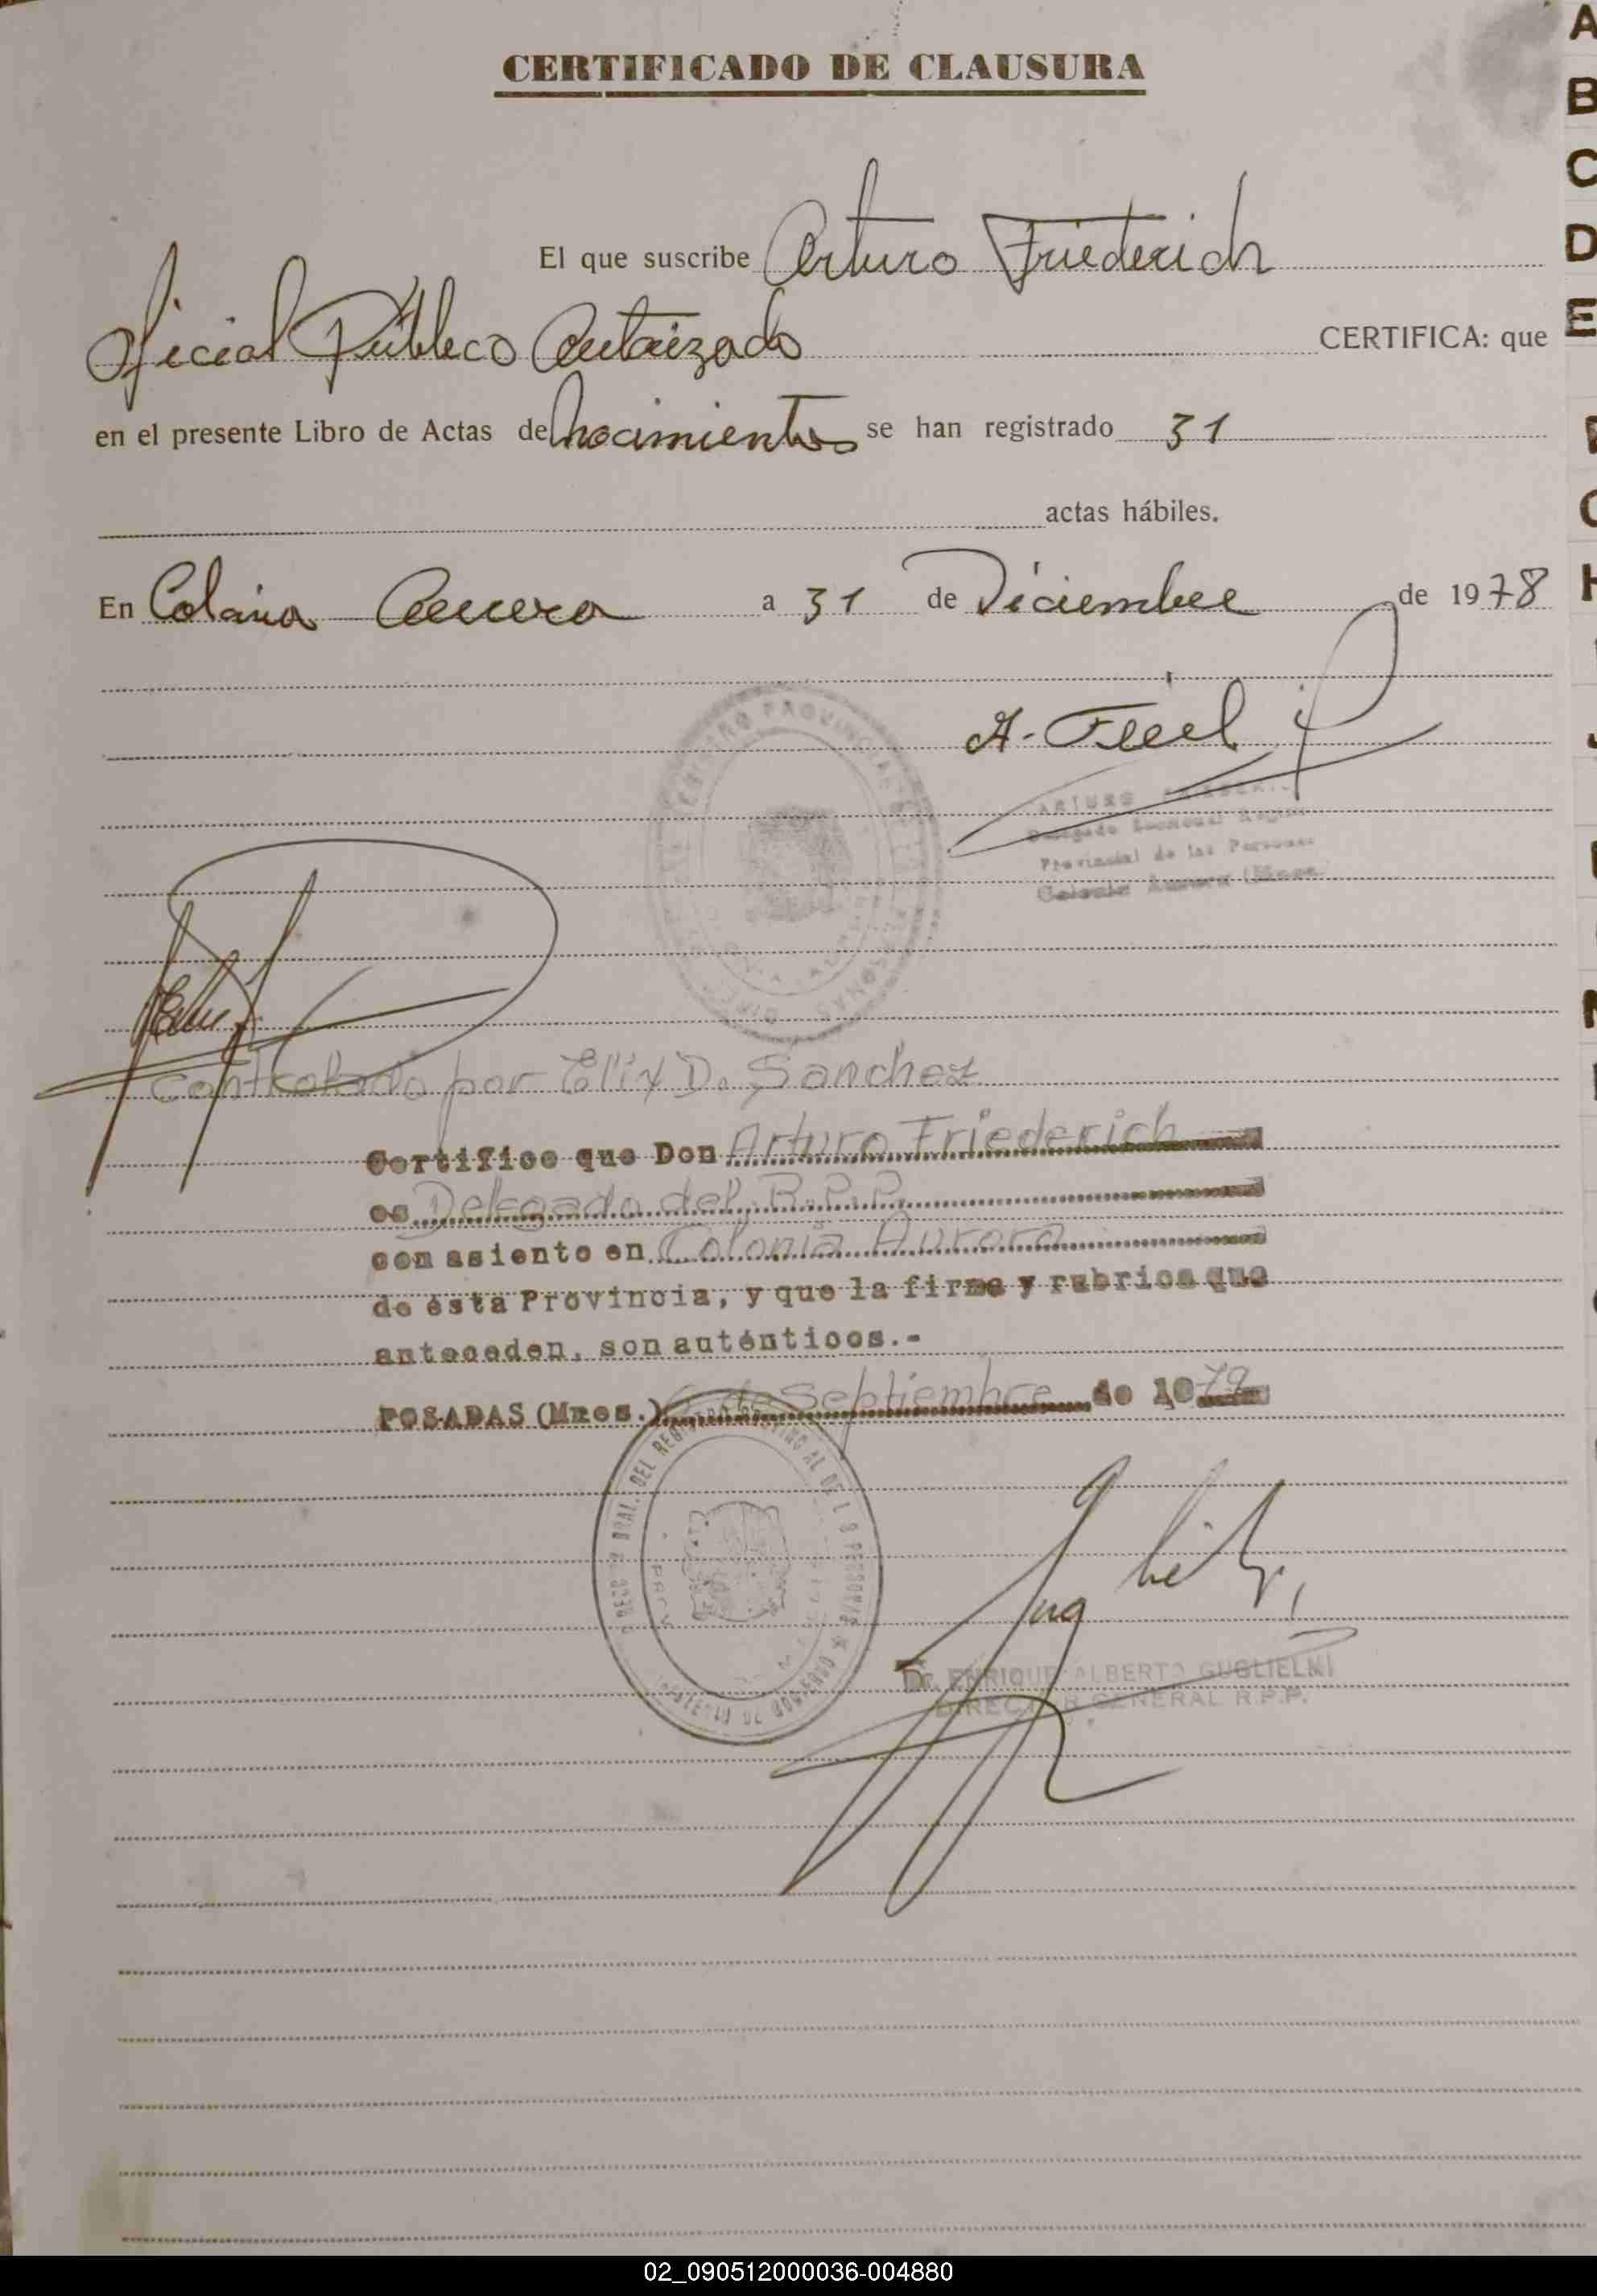 CERTIFICADO DE CLAUSURA
El que suscribe Arturo Friederich
Oficial Público Autorizado CERTIFICA: que
en el presente Libro de Actas de Nacimientos se han registrado 31
actas hábiles.
En Colonia Aurora a 31 de Diciembre de 1978
ARTURO
Provincial de las Personas
Colonia Aurora
Controlado por Elix D. Sanchez
Certifico que Don Arturo Friederich
es Delegado del R.P.P.
con asiento en Colonia Aurora
de ésta Provincia, y que la firma y rubrica que
anteceden, son auténticos.-
POSADAS (Mnes.) de Septiembre de 1979
Dr. ENRIQUE ALBERTO GUGLIELMI
DIRECTOR GENERAL R.P.P.
A
B
C
D
E
H
02_090512000036-004880